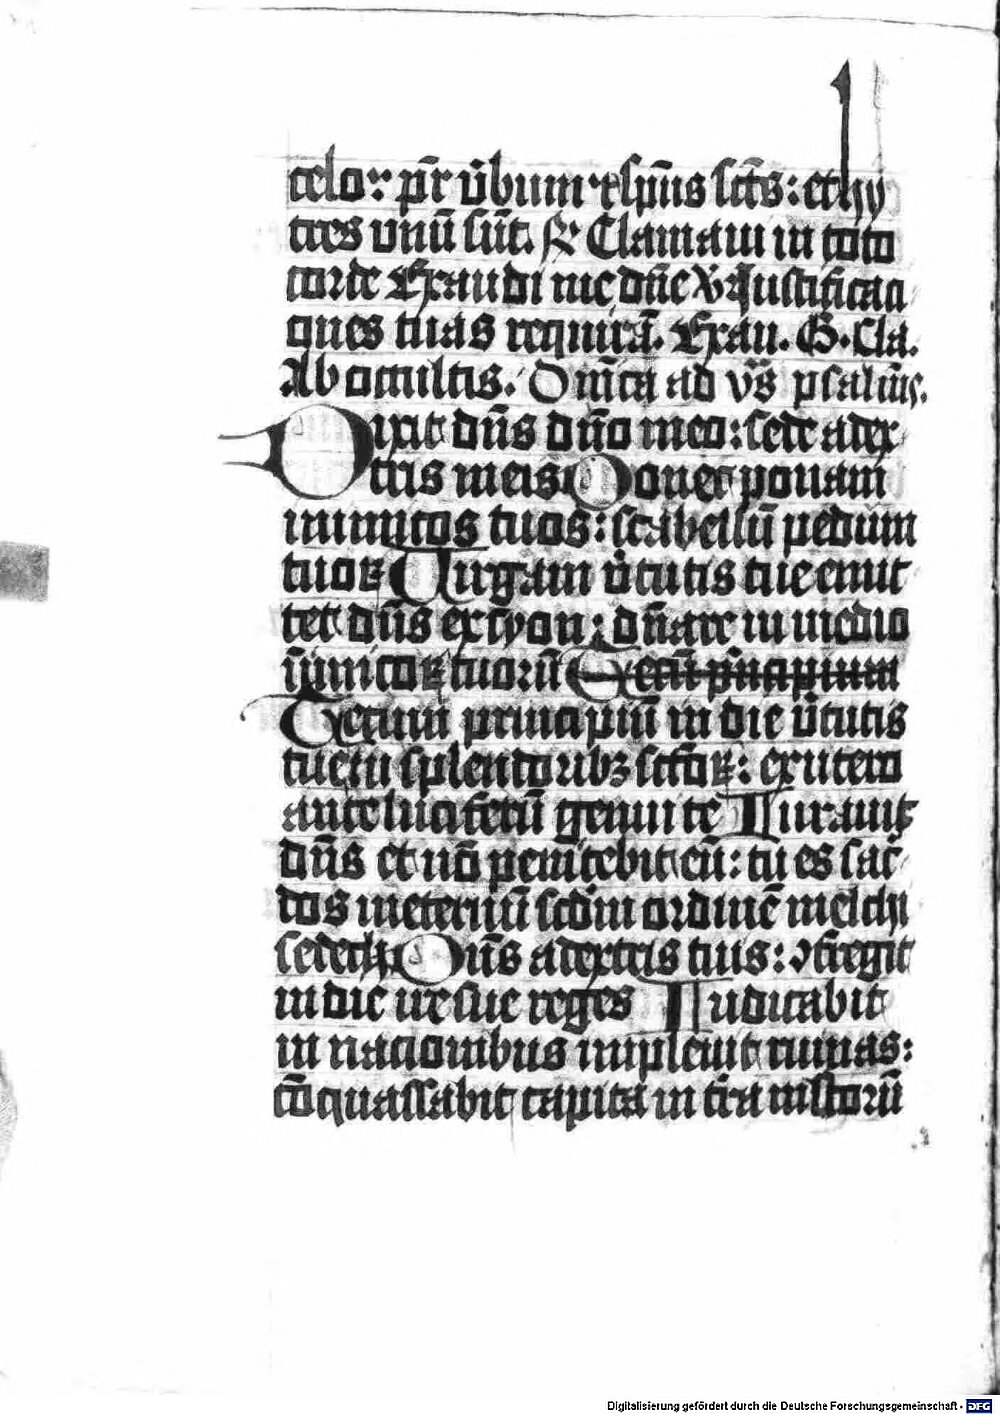 celo: pr̄ ūbum ⁊ sp̄us sct̄s: et hÿ
tres vnū sūt. ꝶ Clamaui in toto
corde Exaudi me dn̄e ℣ Justificaci
ones tuas requirā. Exau. G. Cla.
Ab ocultis. Dn̄ica ad vs̄ psalm̄s.
Dixit dn̄s dn̄o meo: sede a dex
tris meis Donec ponam
inimicos tuos: scabellū pedum
tuoꝝ Uirgam v̄tutis tue emit
tet dn̄s ex syon: dn̄are in medio
inimicoꝝ tuorū Tecū pn̄cipium
Tecum principiū in die v̄tutis
tue in splendoribꝫ sctōꝝ: ex utero
ante luciferū genui te Iurauit
dn̄s et nō penitebit eū: tu es sac̄
dos in eternū scdm ordinē melchi
sedech Dn̄s a dextris tuis: ꝯfregit
in die ire sue reges Iudicabit
in nacionibus impleuit ruinas:
cōquassabit capita in tr̄a mltorū
Digitalisierung gefördert durch die Deutsche Forschungsgemeinschaft - DFG